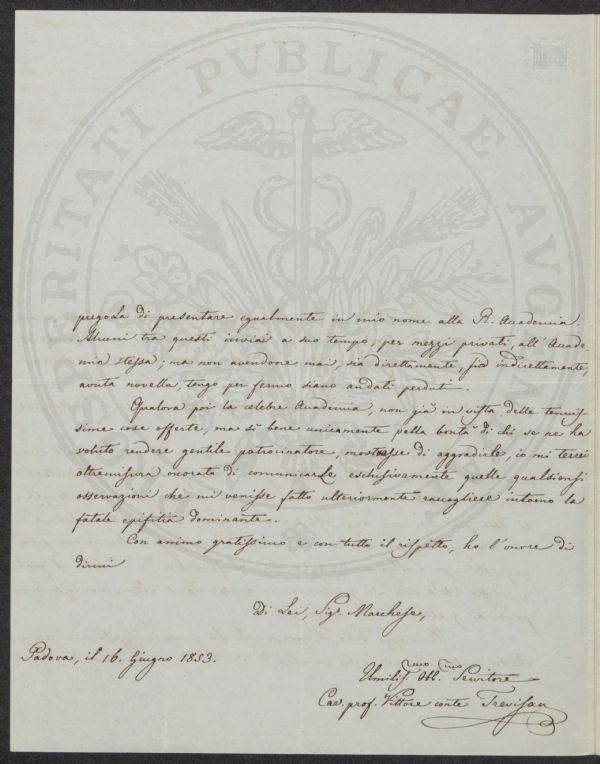 PROSPERITATI PVBLICAE AVGENDAE
pregoLa di presentare egualmente in mio nome alla R. Accademia.
Alcuni tra questi inviai a suo tempo, per mezzi privati, all'Accade
mia stessa; ma non avendone mai, sia direttamente, sia indirettamente,
avuta novella, tengo per fermo siano andati perduti.
Qualora poi la celebre Accademia, non già in vista delle tenuis
sime cose offerte, ma sì bene unicamente pella bontà di chi se ne ha
voluto rendere gentile patrocinatore, mostrasse di aggradirle, io mi terrei
oltremisura onorato di comunicarLe eschisivamente quelle qualsiensi
osservazioni che mi venisse fatto ulteriormente raccogliere intorno la
fatale epifitia dominante.
Con animo gratissimo e con tutto il rispetto, ho l'onore di
dirmi
Di Lei, Sigr. Marchese,
Padova, il 16. Giugno 1853.
Umiliss.mo Obb.mo Servitore
Cav. prof. Vittore conte Trevisan